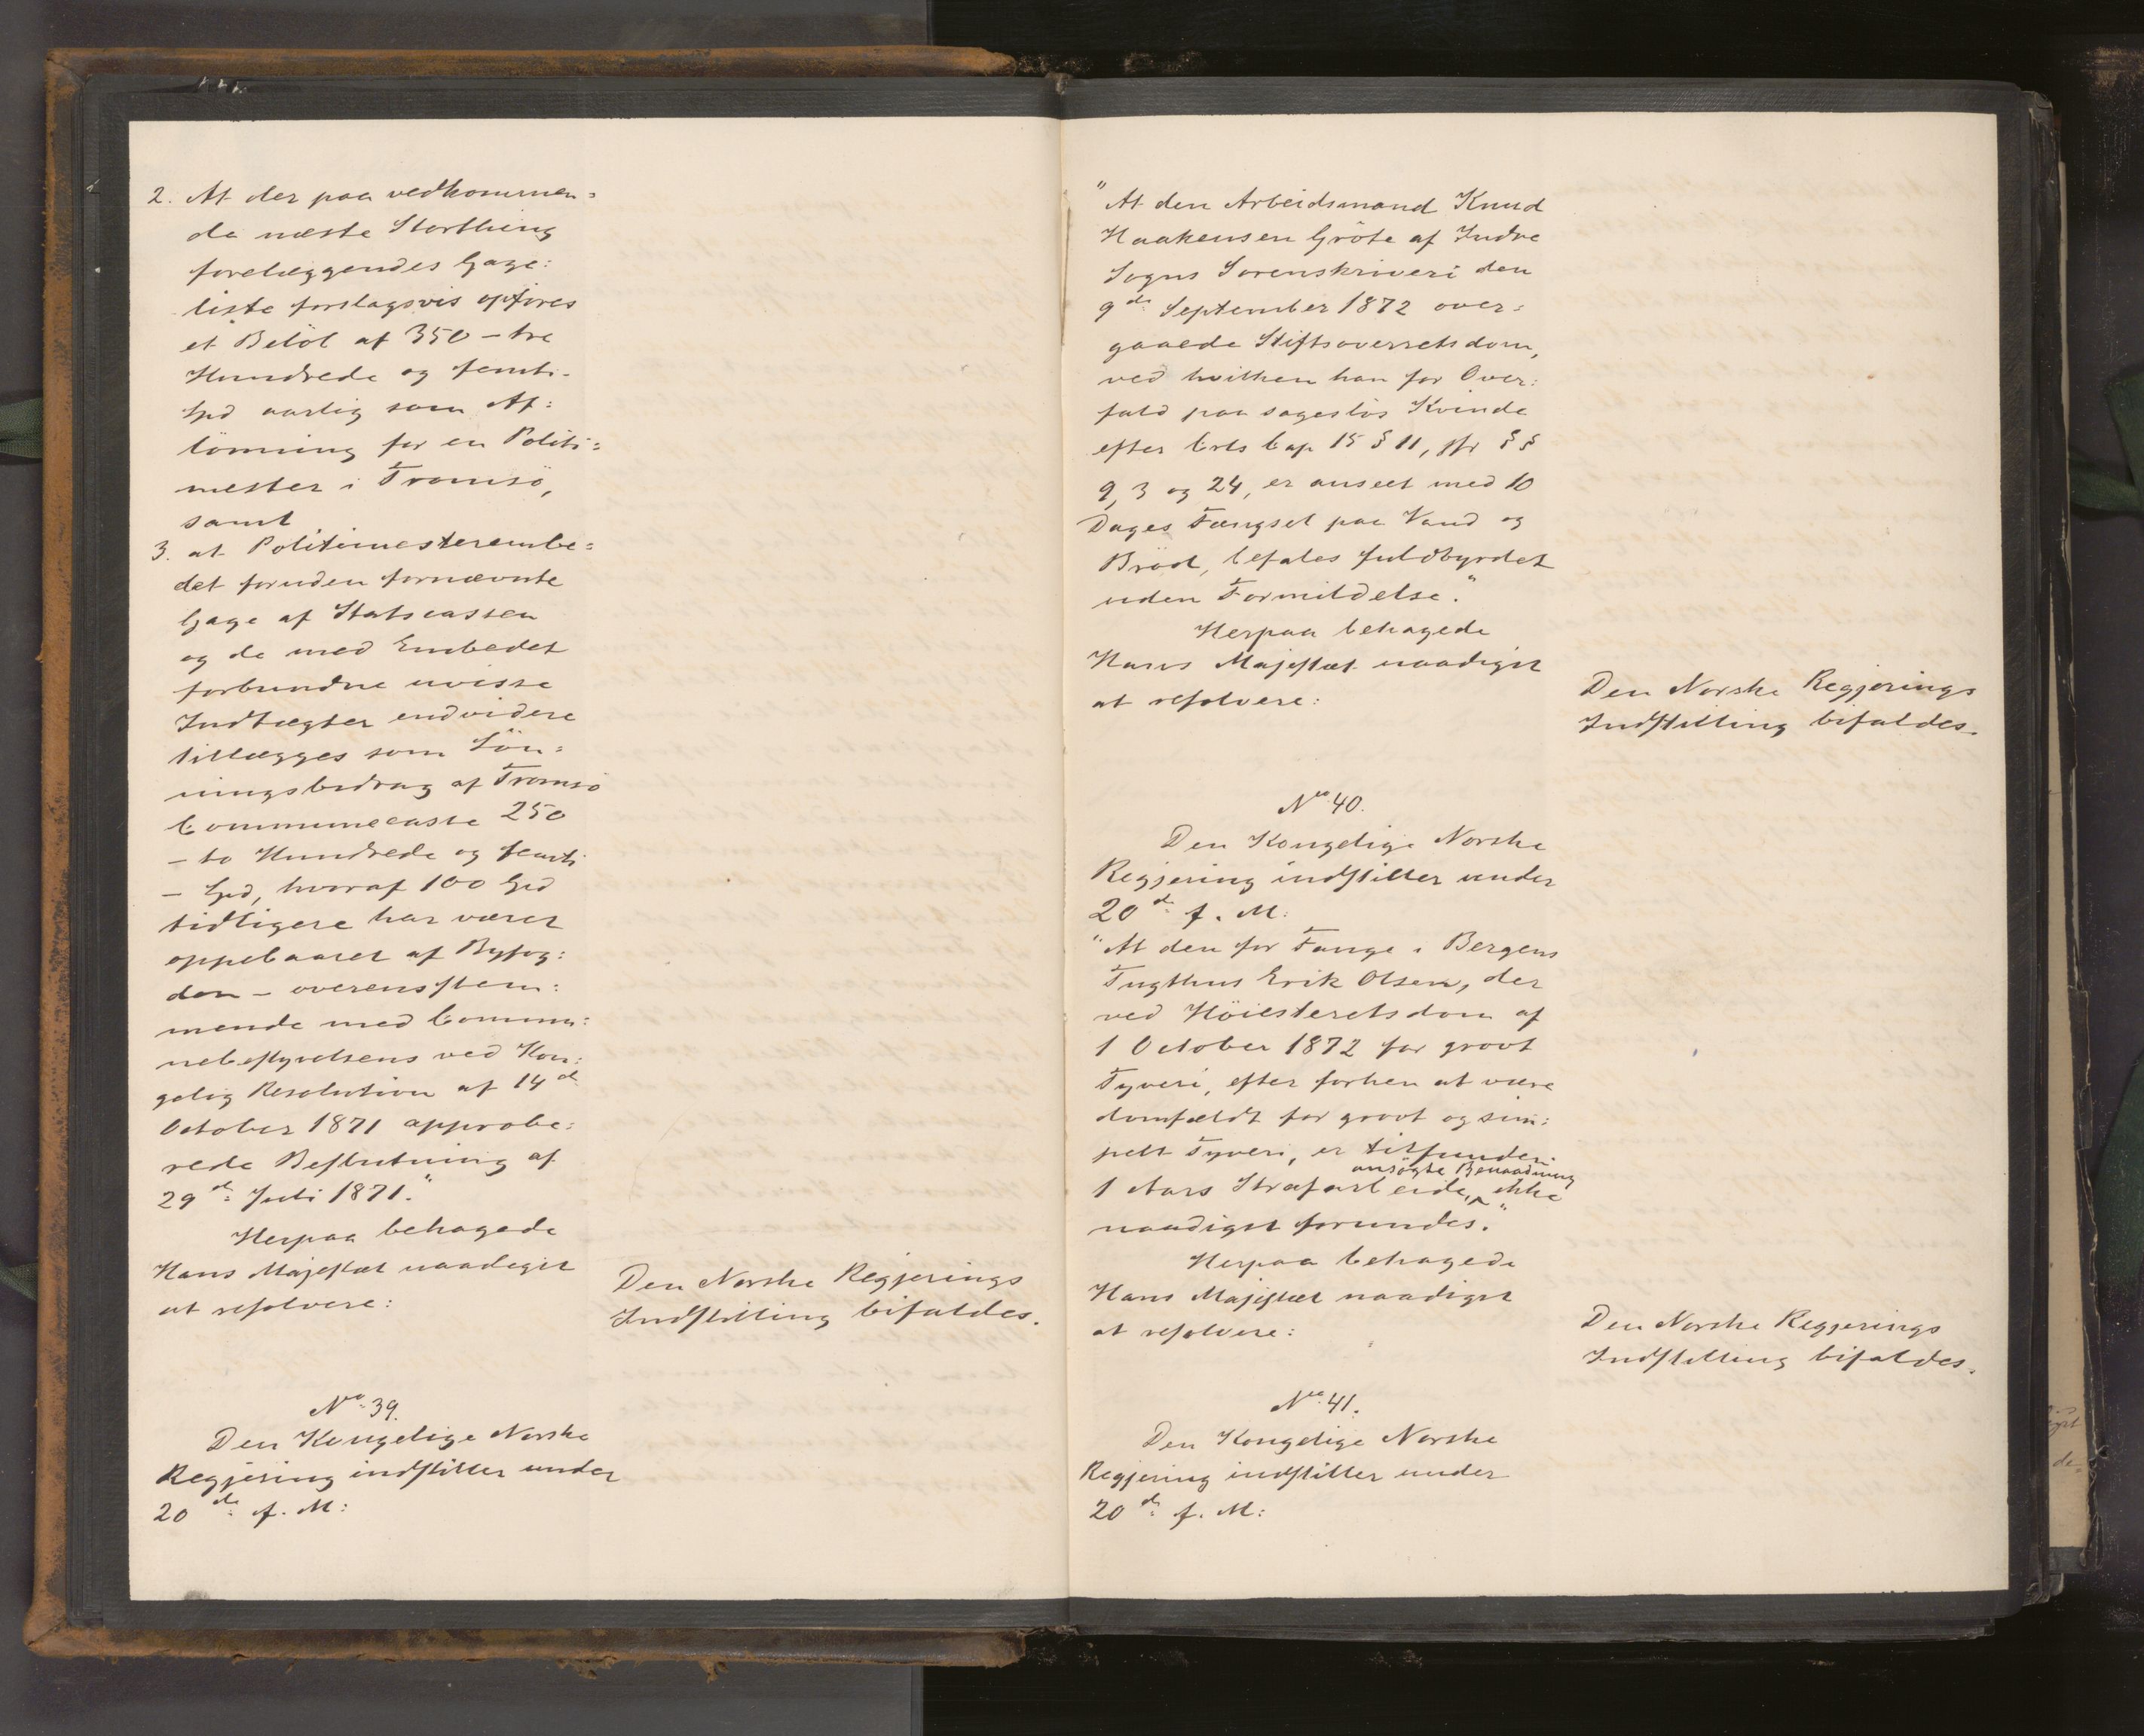 2. At der paa vedkommen=
de næste Storthing
forelæggendes Gage:
liste forslagsvis opføres
et Beløb af 350 – tre
Hundrede og femti –
Spd aarlig som Af:
lønning for en Politi=
mester i Tromsö,
samt
3. at Politimesterembe=
det foruden fornævnte
Gage af Statscassen
og de med Embedet
forbundne uvisse
Indtægter endvidere
tillægges som Løn=
ningsbidrag af Tromsö
Communecasse 250
– to Hundrede og femti
– Spd, hvoraf 100 Spd
tidligere har været
oppebaaret af Byfog:
den – overensstem:
mende med Commu:
nebestyrelsens ved Kon:
gelig Resolution af 14de
October 1871 approbe:
rede Beslutning af
29de Juli 1871."
Herpaa behagede
Hans Majestæt naadigst
at resolvere:
Den Norske Regjerings
Indstilling bifaldes.
No 39.
Den Kongelige Norske
Regjering indstiller under
20de f. M:
"At den Arbeidsmand Knud
Haakensen Gröte af Indre
Sogns Sorenskriveri den
9de September 1872 over:
gaaede Stiftsoverretsdom,
ved hvilken han for Over:
fald paa sagesløs Kvinde
efter Crls Cap 15 § 11, jfr §§
9, 3 og 24, er anseet med 10
Dages Fængsel paa Vand og
Bröd, befales fuldbyrdet
uden Formildelse."
Herpaa behagede
Hans Majestæt naadigst
at resolvere:
Den Norske Regjerings
Indstilling bifaldes.
No 40.
Den Kongelige Norske
Regjering indstiller under
20de f. M:
"At den for Fange i Bergens
Tugthus Erik Olsen, der
ved Höiesteretsdom af
1 October 1872 for grovt
Tyveri, efter forhen at være
domfældt for grovt og sim:
pelt Tyveri, er tilfunden
ansögte Benaadning
1 Aars Strafarbeide, ikke
naadigst forundes."
Herpaa behagede
Hans Majestæt naadigst
at resolvere:
Den Norske Regjerings
Indstilling bifaldes.
No 41.
Den Kongelige Norske
Regjering indstiller under
20de f. M: